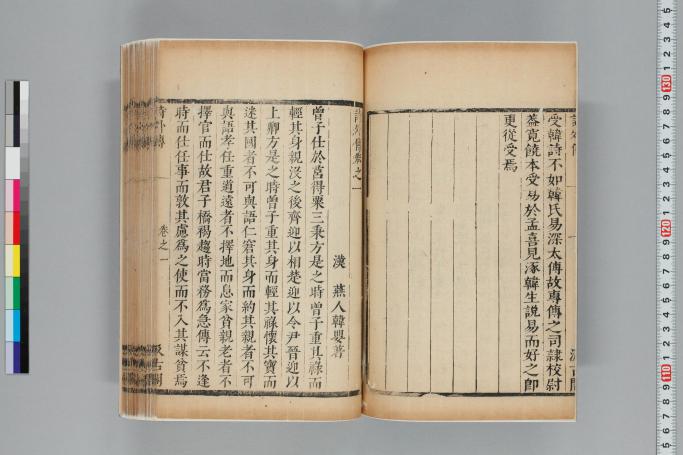 受韓詩不如韓氏易深太傅故專傳之司隷校尉
蓋寬饒本受易於孟喜見涿韓生說易而好之卽
更從受焉
詩外傳卷之一
漢 燕人韓嬰著
曾子仕於莒得粟三秉方是之時曾子重其祿而
輕其身親沒之後齊迎以相楚迎以令尹晉迎以
上卿方是之時曾子重其身而輕其祿懷其寶而
迷其國者不可與語仁窘其身而約其親者不可
與語孝任重道遠者不擇地而息家貧親老者不
擇官而仕故君子橋褐趨時當務爲急傳云不逢
時而仕任事而敦其慮爲之使而不入其謀貧焉
詩外傳
卷之一
汲古閣
130
120
110